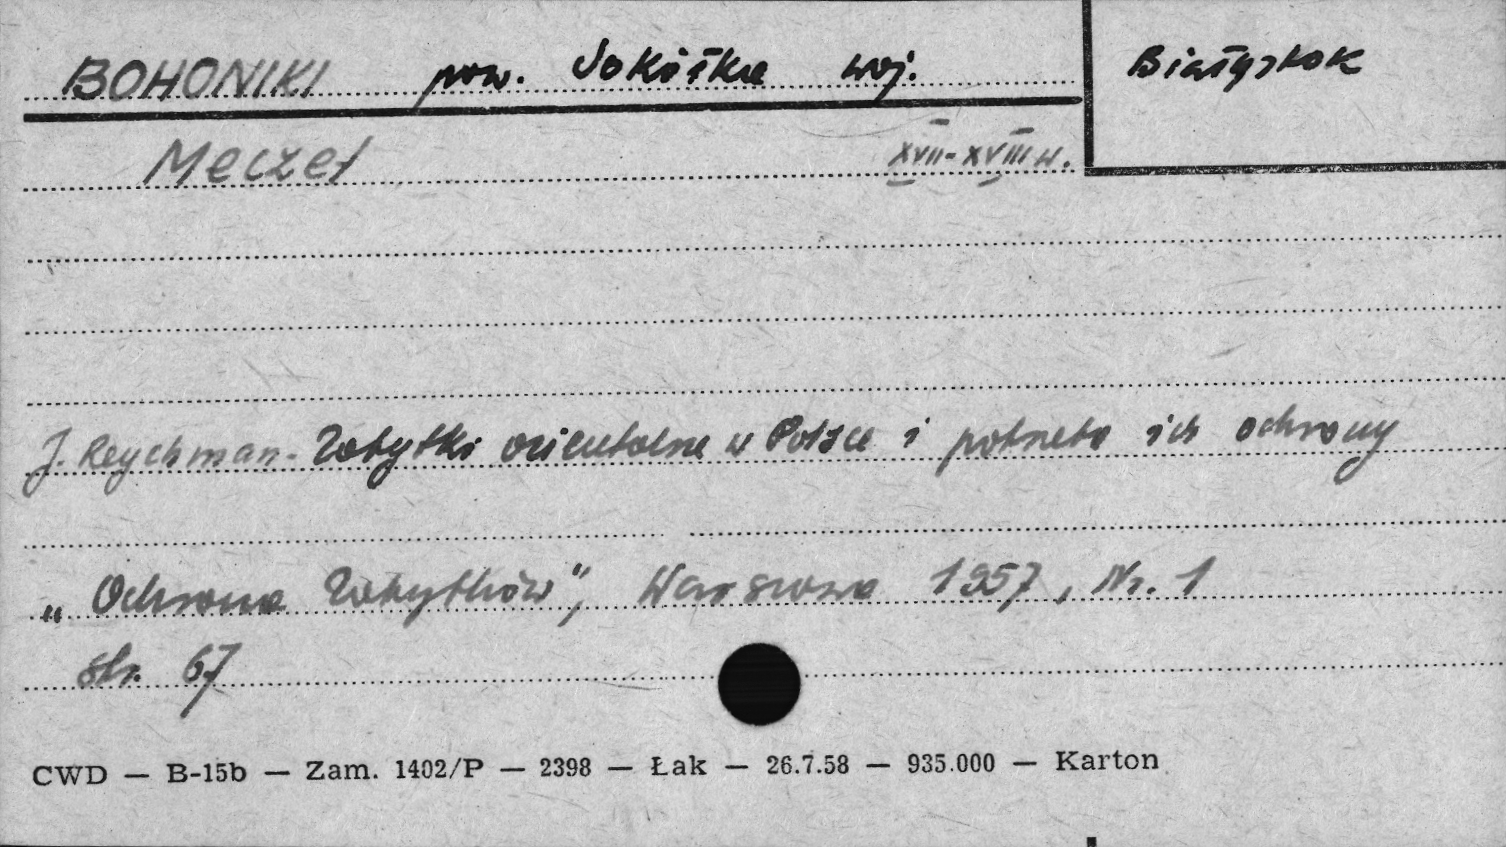 BOHONIKI pow. Sokółka woj. Białystok
Meczet XVII-XVIII w.
J. Reychman - Zabytki orientalne w Polsce i potrzeba ich ochrony
„Ochrona Zabytków", Warszawa 1957, Nr. 1
str. 67
CWD — B-15b — Zam. 1402/P — 2398 — Łak — 26.7.58 — 935.000 — Karton